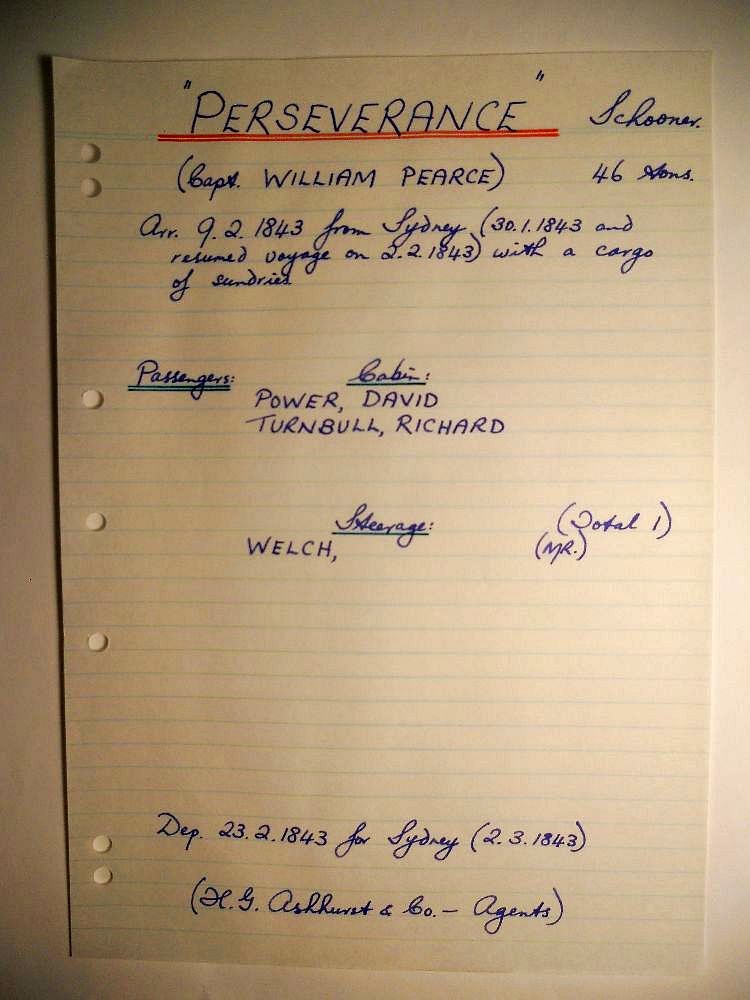 "PERSEVERANCE" Schooner.
(Capt. WILLIAM PEARCE) 46 tons.
Arr. 9.2.1843 from Sydney (30.1.1843 and
resumed voyage on 2.2.1843) with a cargo
of sundries
Passengers: Cabin:
POWER, DAVID
TURNBULL, RICHARD
Steerage: (Total 1)
WELCH, (MR.)
Dep. 23.2.1843 for Sydney (2.3.1843)
(H.G. Ashhurst & Co. - Agents)